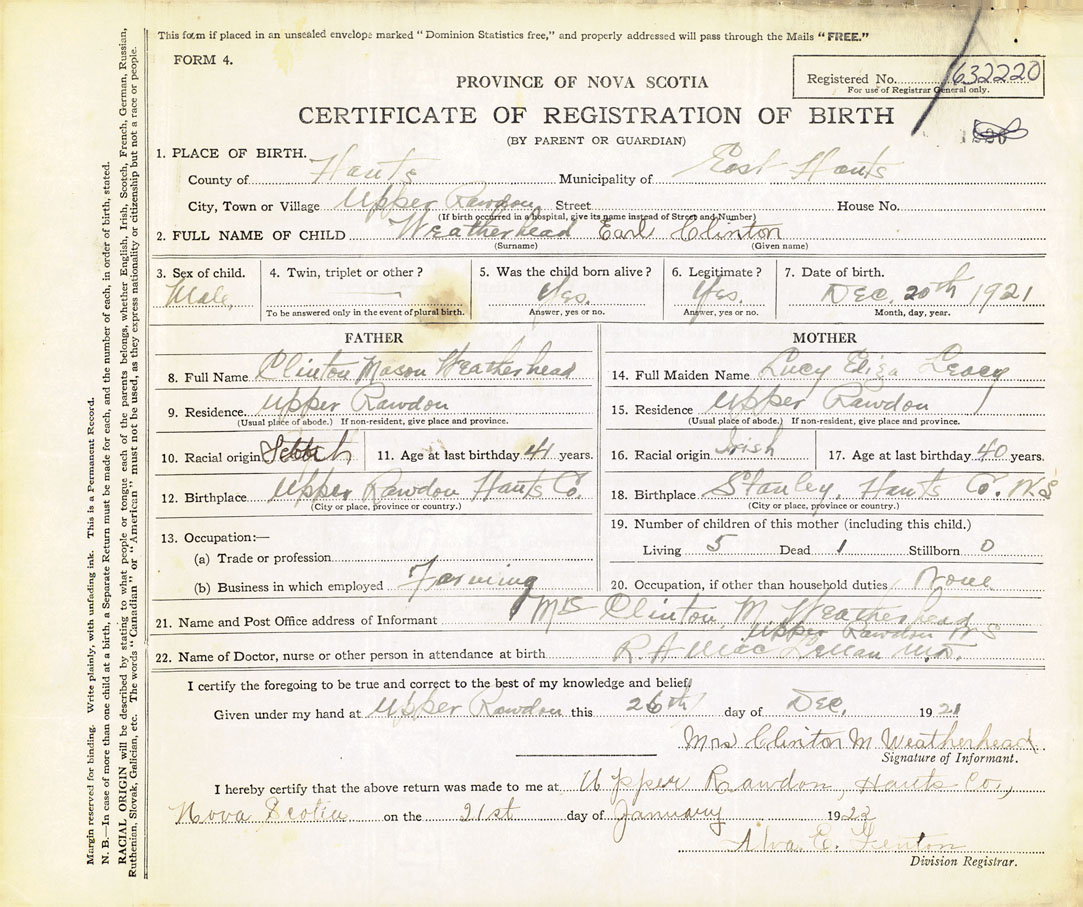 This form if placed in an unsealed envelope marked "Dominion Statistics free," and properly addressed will pass through the Mails "FREE."
FORM 4.
Registered No. 632220
For use of Registrar General only.
PROVINCE OF NOVA SCOTIA
CERTIFICATE OF REGISTRATION OF BIRTH
(BY PARENT OR GUARDIAN)
1. PLACE OF BIRTH.
County of Hants Municipality of East Hants
City, Town or Village Upper Rawdon Street House No.
(If birth occurred in a hospital, give its name instead of Street and Number)
2. FULL NAME OF CHILD Weatherhead Earl Clinton
(Surname) (Given name)
3. Sex of child. 4. Twin, triplet or other? 5. Was the child born alive? 6. Legitimate? 7. Date of birth.
Male, Yes. Yes. Dec. 20th 1921
To be answered only in the event of plural birth. Answer, yes or no. Answer, yes or no. Month, day, year.
FATHER
8. Full Name Clinton Mason Weatherhead
9. Residence. Upper Rawdon
(Usual place of abode.) If non-resident, give place and province.
10. Racial origin Scotch 11. Age at last birthday 41 years.
12. Birthplace Upper Rawdon Hants Co.
(City or place, province or country.)
13. Occupation:—
(a) Trade or profession
(b) Business in which employed Farming
MOTHER
14. Full Maiden Name Lucy Eliza Leary
15. Residence Upper Rawdon
(Usual place of abode.) If non-resident, give place and province.
16. Racial origin Irish 17. Age at last birthday 40 years.
18. Birthplace Stanley, Hants Co. N.S
(City or place, province or country.)
19. Number of children of this mother (including this child.)
Living 5 Dead 1 Stillborn 0
20. Occupation, if other than household duties None
21. Name and Post Office address of Informant Mrs Clinton M Weatherhead
Upper Rawdon N S
22. Name of Doctor, nurse or other person in attendance at birth R. A MacLellan M.D.
I certify the foregoing to be true and correct to the best of my knowledge and belief.
Given under my hand at Upper Rawdon this 26th day of Dec. 1921
Mrs Clinton M Weatherhead
Signature of Informant.
I hereby certify that the above return was made to me at Upper Rawdon, Hants Co.,
Nova Scotia on the 21st day of January 1922
Alva E. Fenton
Division Registrar.
Margin reserved for binding. Write plainly, with unfading ink. This is a Permanent Record.
N. B.—In case of more than one child at a birth, a Separate Return must be made for each, and the number of each, in order of birth, stated.
RACIAL ORIGIN will be described by stating to what people or tongue each of the parents belongs, whether English, Irish, Scotch, French, German, Russian,
Ruthenian, Slovak, Galician, etc. The words "Canadian" or "American" must not be used, as they express nationality or citizenship but not a race or people.